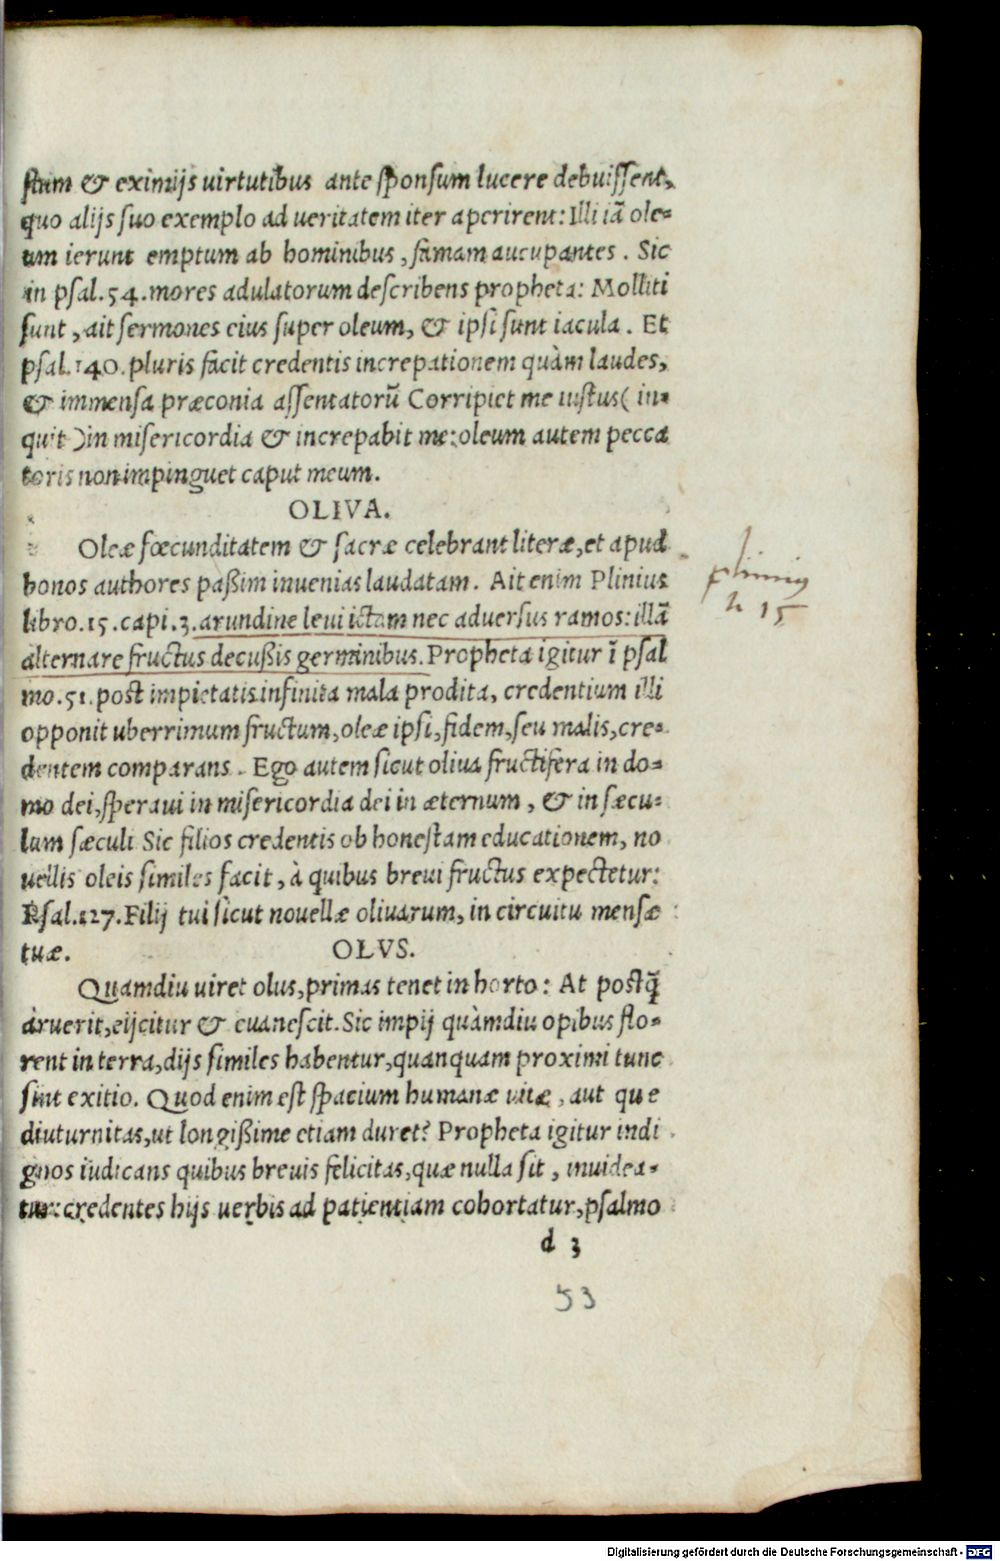 stum & eximijs uirtutibus ante sponsum lucere debuissent,
quo alijs suo exemplo ad ueritatem iter aperirent: Illi iã ole-
um ierunt emptum ab hominibus, famam aucupantes. Sic
in psal. 54. mores adulatorum describens propheta: Molliti
sunt, ait sermones eius super oleum, & ipsi sunt iacula. Et
psal. 140. pluris facit credentis increpationem quàm laudes,
& immensa præconia assentatorũ Corripiet me iustus ( in-
quit ) in misericordia & increpabit me: oleum autem pecca
toris non impinguet caput meum.
OLIVA.
Oleæ fœcunditatem & sacræ celebrant literæ, et apud
bonos authores paßim inuenias laudatam. Ait enim Plinius
libro. 15. capi. 3. arundine leui ictam nec aduersus ramos: illã
alternare fructus decußis germinibus. Propheta igitur ĩ psal
mo. 51. post impietatis infinita mala prodita, credentium illi
opponit uberrimum fructum, oleæ ipsi, fidem, seu malis, cre-
dentem comparans. Ego autem sicut oliua fructifera in do-
mo dei, speraui in misericordia dei in æternum, & in sæcu-
lum sæculi Sic filios credentis ob honestam educationem, no
uellis oleis similes facit, à quibus breui fructus expectetur:
Psal. 127. Filij tui sicut nouellæ oliuarum, in circuitu mensæ
tuæ. OLVS.
Quamdiu uiret olus, primas tenet in horto: At postq̃
àruerit, eijcitur & euanescit. Sic impij quàmdiu opibus flo-
rent in terra, dijs similes habentur, quanquam proximi tunc
sint exitio. Quod enim est spacium humanæ uitæ, aut que
diuturnitas, ut longißime etiam duret? Propheta igitur indi
gnos iudicans quibus breuis felicitas, quæ nulla sit, inuidea-
tur: credentes hijs uerbis ad patientiam cohortatur, psalmo
d 3
53
plinius
li 15
Digitalisierung gefördert durch die Deutsche Forschungsgemeinschaft - DFG